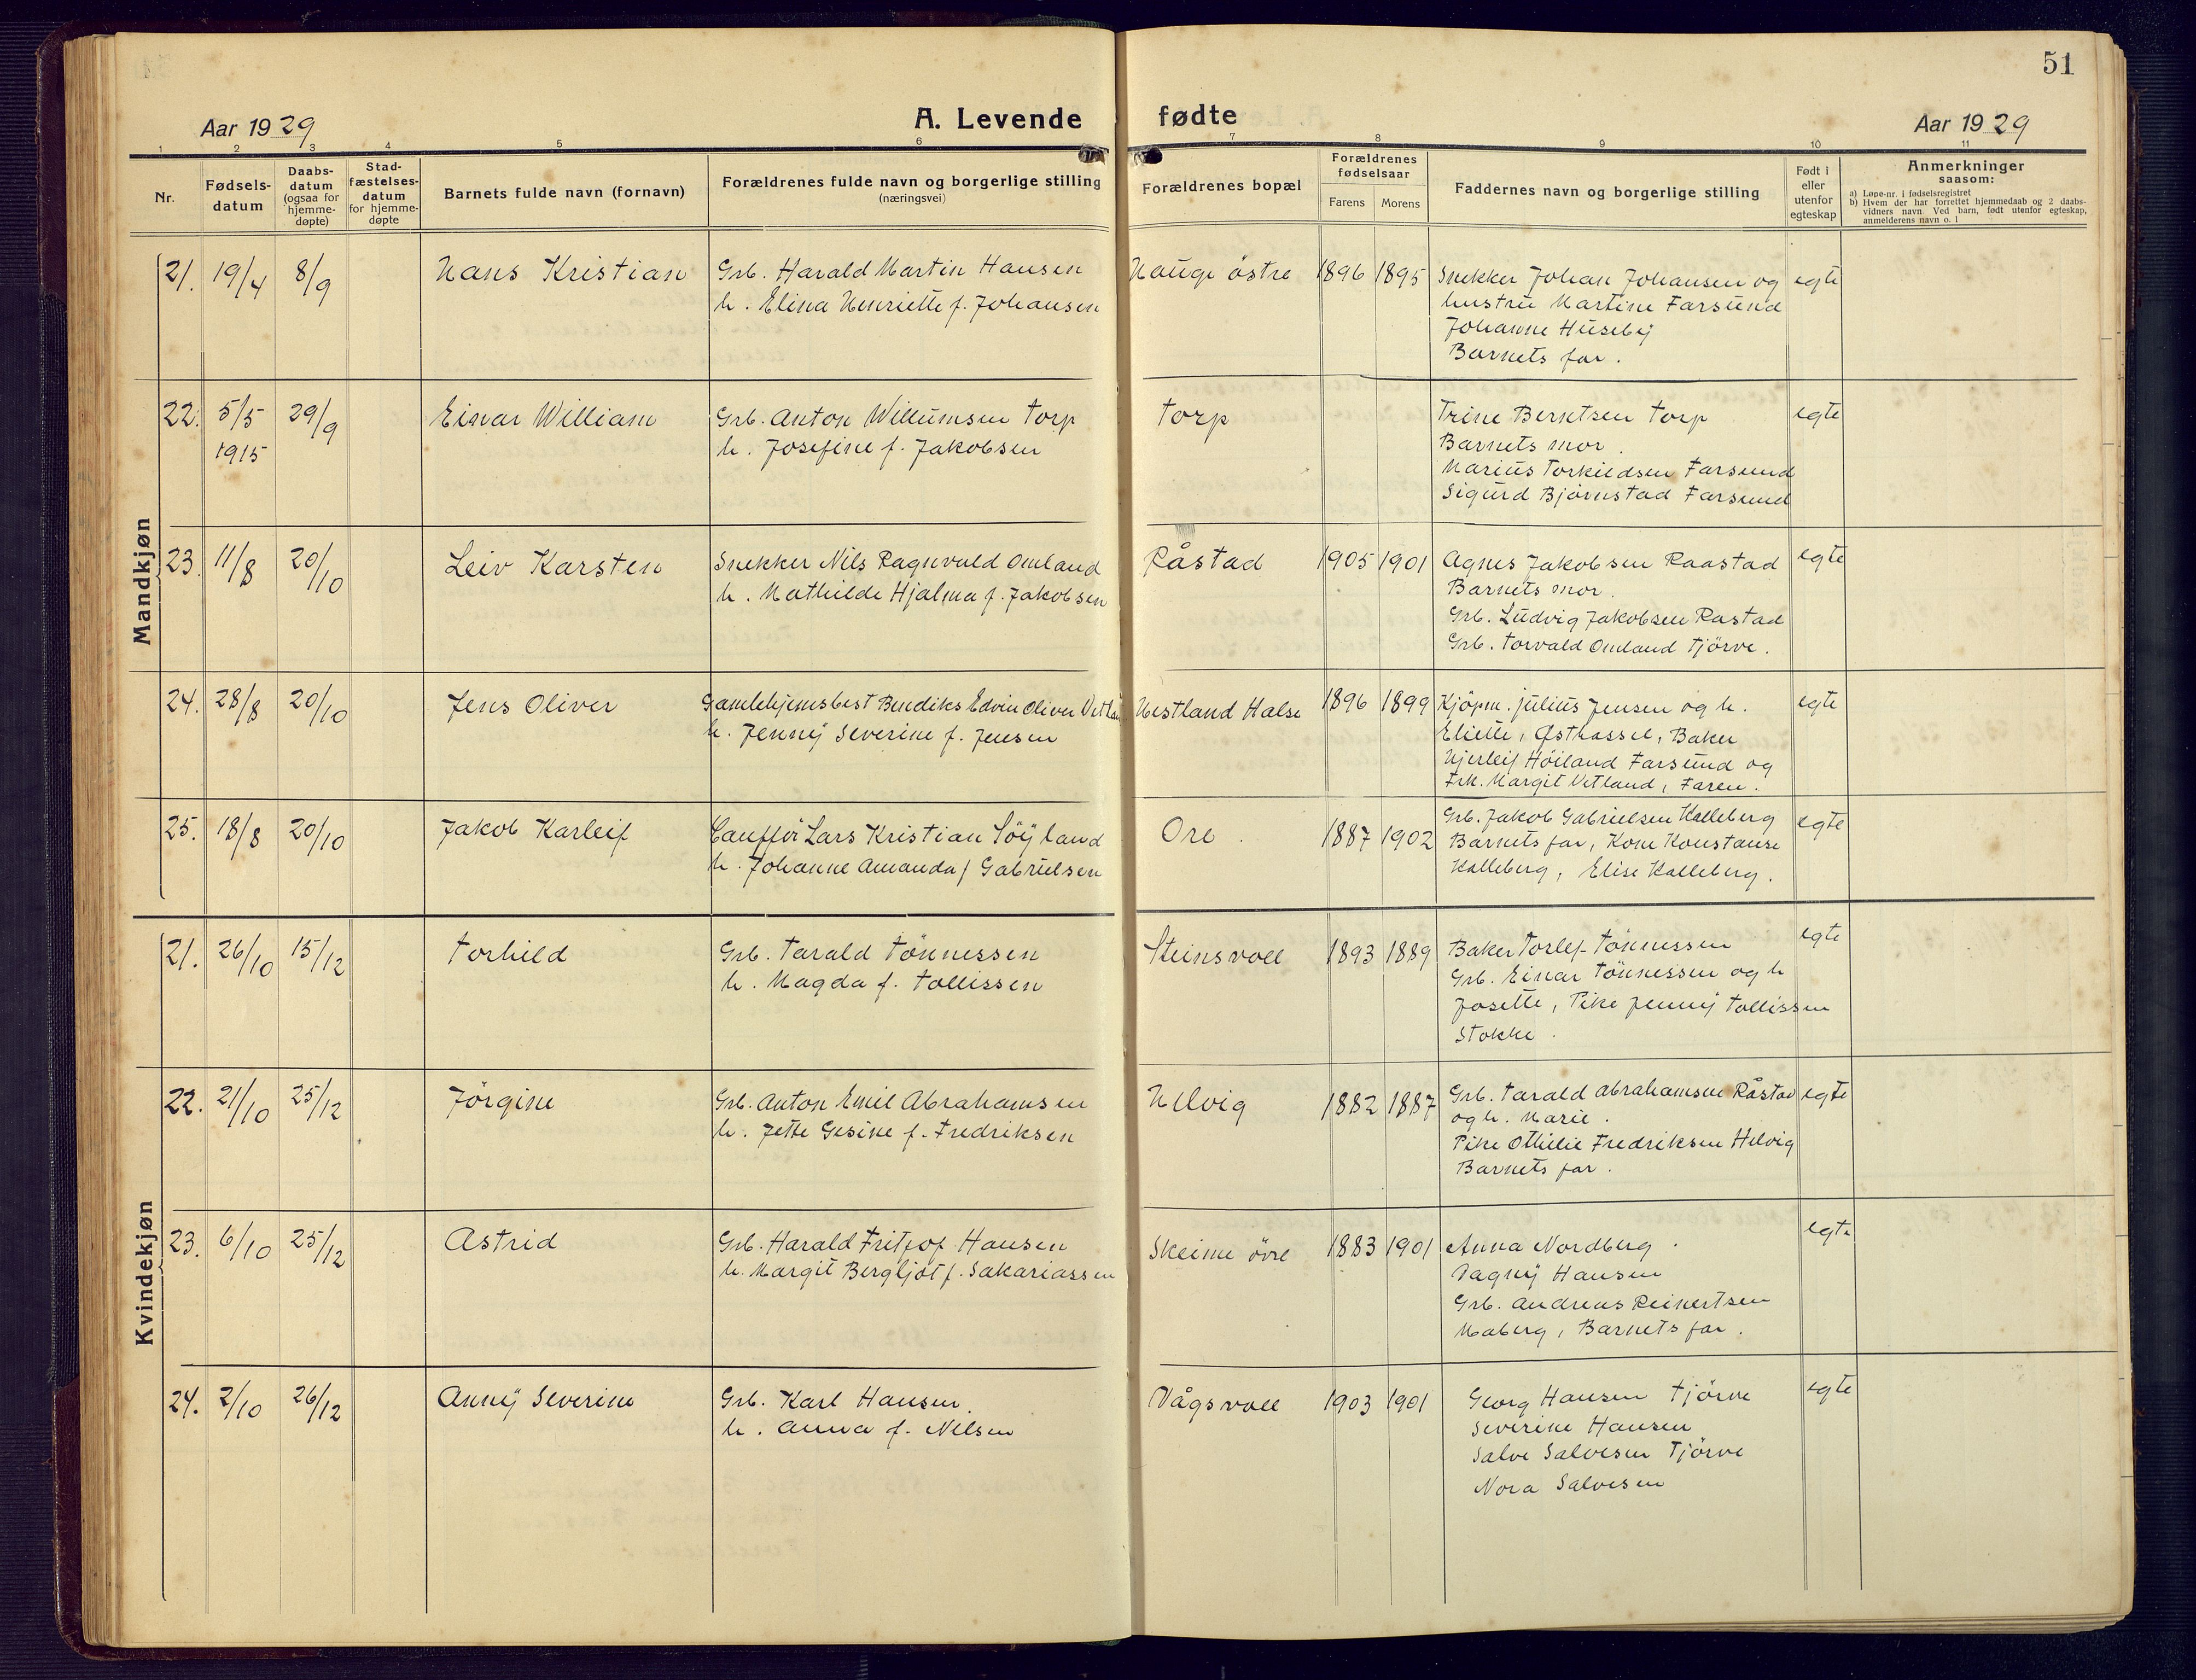 51
Aar 1929
A. Levende fødte
Aar 1929
1 2 3 4 5 6 7 8 9 10 11
Nr.
Fødsels-
datum
Daabs-
datum
(ogsaa for
hjemme-
døpte)
Stad-
fæstelses-
datum
for hjemme-
døpte
Barnets fulde navn (fornavn)
Forældrenes fulde navn og borgerlige stilling
(næringsvei)
Forældrenes bopæl
Forældrenes
fødselsaar
Farens Morens
Faddernes navn og borgerlige stilling
Født i
eller
utenfor
egteskap
Anmerkninger
saasom:
a) Løpe-nr. i fødselsregistret
b) Hvem der har forrettet hjemmedaab og 2 daabs-
vidners navn. Ved barn, født utenfor egteskap,
anmelderens navn o. l
Mandkjøn
21. 19/4 8/9 Hans Kristian
Grb. Harald Martin Hansen
h. Elina Henriette f. Johansen
Hauge østre 1896 1895
Snekker Johan Johansen og
hustru Martine Farsund
Johanne Huseby
Barnets far.
egte
22. 5/5 29/9 Einar William
1915
Grb. Anton Willumsen Torp
h. Josefine f. Jakobsen
Torp
Trine Berntsen Torp
Barnets mor.
Marius Torkildsen Farsund
Sigurd Bjørnstad Farsund
egte
23. 11/8 20/10 Leiv Karsten
Snekker Nils Ragnvald Omland
h. Mathilde Hjalma f. Jakobsen
Råstad 1905 1901
Agnes Jakobsen Raastad
Barnets mor.
Grb. Ludvig Jakobsen Råstad
Grb. Torvald Omland Tjörve.
egte
24. 28/8 20/10 Jens Oliver
Gamlehjemsbest Bendiks Edvin Oliver
h. Jenny Severine f. Jensen
Vestland Halse 1896 1899
Kjöpm. Julius Jensen og h.
Eliette, Østhassel, Baker
Hjerleif Höiland Farsund og
Frk. Margit Vetland, Faren.
egte
25. 18/8 20/10 Jakob Karleif
Lars Kristian Söyland
h. Johanne Amanda f Gabrielsen
Ore 1887 1902
Grb. Jakob Gabrielsen Kalleberg
Barnets far, Kone Konstanse
Kalleberg, Elise Kalleberg.
egte
Kvindekjøn
21. 26/10 15/12 Torhild
Grb. Tarald Tönnessen
h. Magda f. Tollissen
Steinsvoll 1893 1889
Baker Torlef Tönnessen
Grb. Einar Tönnessen og h
Josette, Pike Jenny Tollissen
Stokke.
egte
22. 21/10 25/12 Jörgine
Grb. Anton Emil Abrahamsen
h. Jette Gesine f. Fredriksen
Helvig 1882 1887
Grb. Tarald Abrahamsen Råstad
og h. Marie.
Pike Othilie Fredriksen Helvig
Barnets far.
egte
23. 6/10 25/12 Astrid
Grb. Harald Fritjof Hansen
h. Margit Bergljot f. Sakariassen
Skeime övre 1883 1901
Anna Nordberg.
Dagny Hansen
Grb. Andreas Reinertsen
Maberg, Barnets far.
egte
24. 2/10 26/12 Anny Severine
Grb. Karl Hansen
h. Anna f. Nilsen
Vågsvoll 1903 1901
Georg Hansen Tjörve
Severine Hansen
Salve Salvesen Tjörve
Nora Salvesen
egte